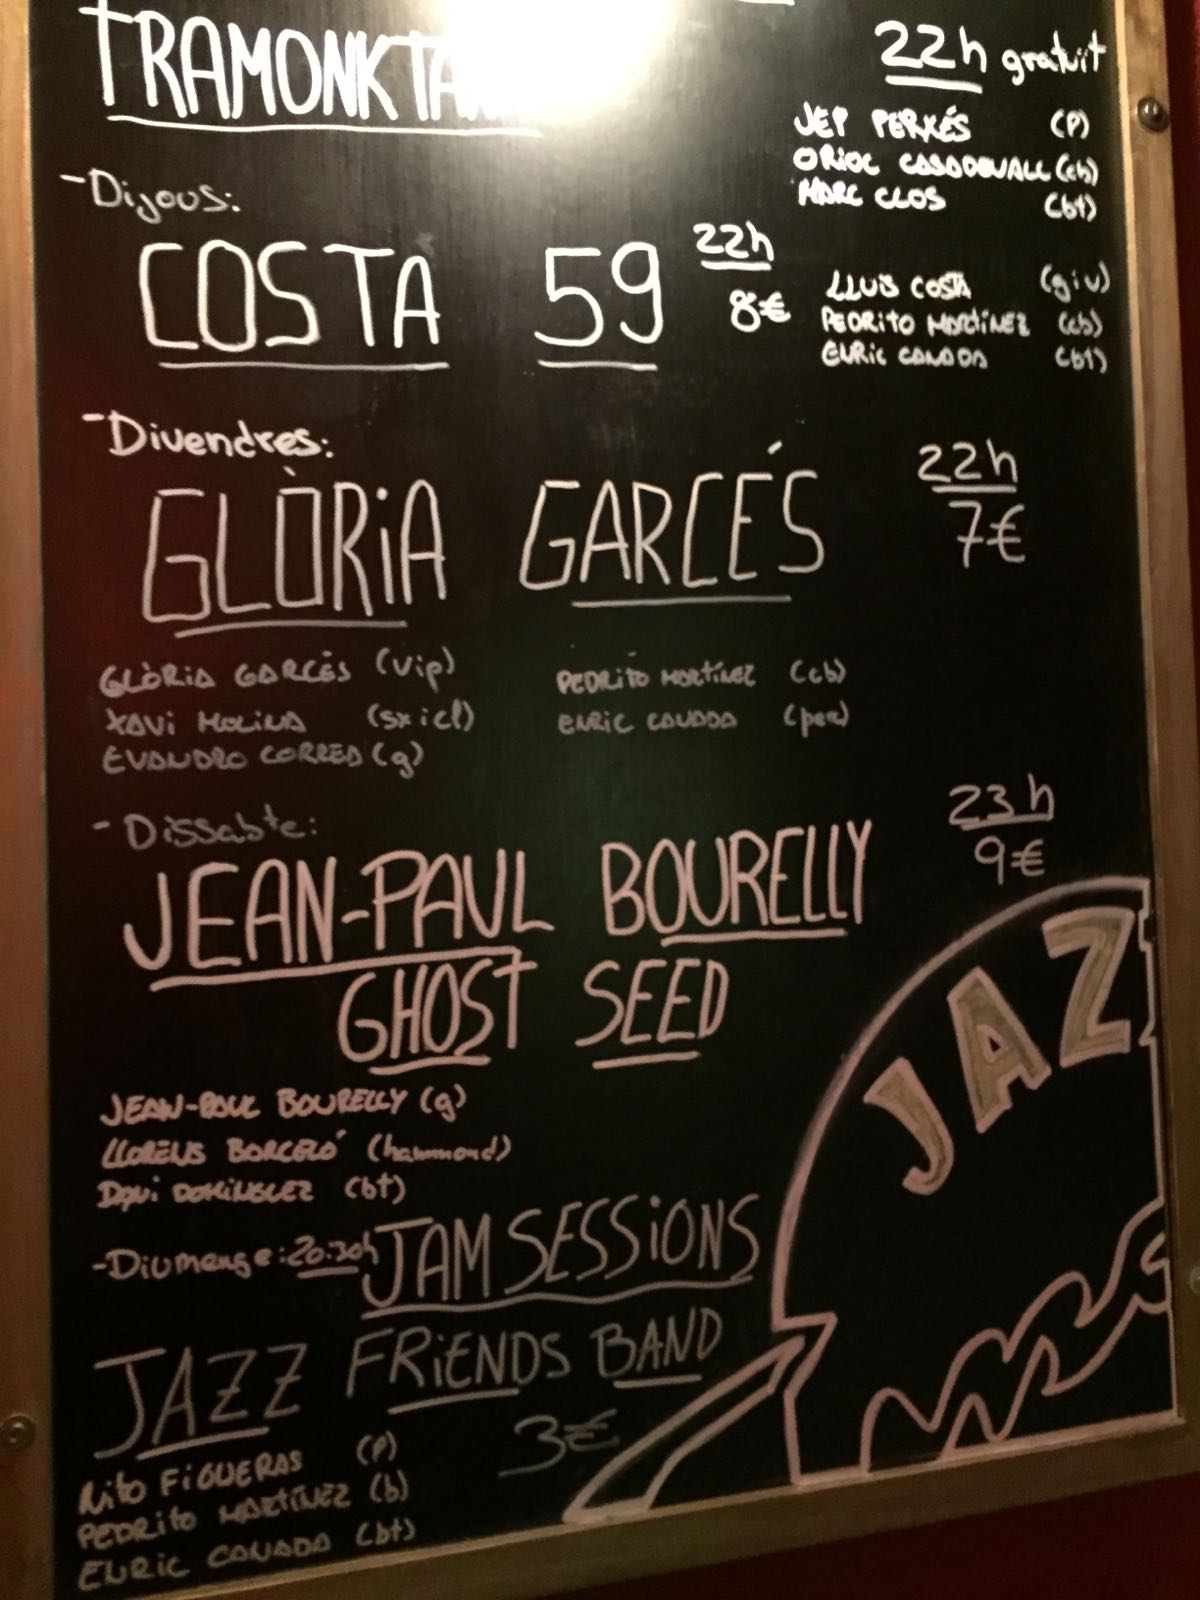 22h gratuït
JEP PERXÉS (p)
ORIOL CASADEVALL (cb)
MARC CLOS (bt)
-Dijous:
COSTA 59 22h 8€
LLUIS COSTA (g i v)
PEDRITO MARTÍNEZ (cb)
ENRIC CANADA (bt)
-Divendres:
GLÒRIA GARCÉS 22h 7€
GLÒRIA GARCÉS (v i p) PEDRITO MARTÍNEZ (cb)
XAVI MOLINA (sx i cl) ENRIC CANADA (per)
EVANDRO CORREA (g)
-Dissabte: 23h 9€
JEAN-PAUL BOURELLY
GHOST SEED
JEAN-PAUL BOURELLY (g)
LLORENS BARCELÓ (hammond)
DAVI DOMINGUEZ (bt)
-Diumenge: 20:30h JAM SESSiONS
JAZZ FRiENDS BAND
3€
Nito FiGUERAS (p)
PEDRito MARTÍNEZ (b)
ENRiC CANADA (bt)
JAZZ